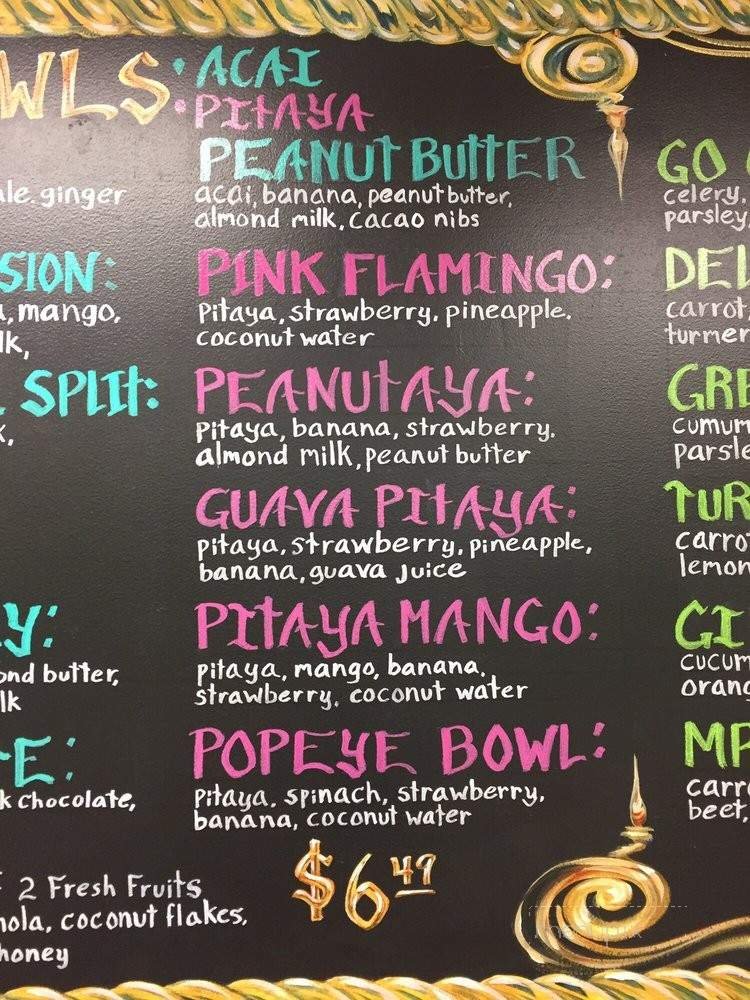 WLS
• ACAI
• PITAYA
ale. ginger
SION:
a, mango,
lk,
SPLIT:
k,
Y:
ond butter,
lk
E:
k chocolate,
2 Fresh Fruits
nola, coconut flakes,
honey
PEANUT BUTTER
acai, banana, peanut butter,
almond milk, cacao nibs
PINK FLAMINGO:
Pitaya, strawberry, pineapple.
coconut water
PEANUTAYA:
Pitaya, banana, strawberry.
almond milk, peanut butter
GUAVA PITAYA:
pitaya, strawberry, pineapple,
banana, guava juice
PITAYA MANGO:
pitaya, mango, banana,
strawberry, coconut water
POPEYE BOWL:
Pitaya, spinach, strawberry,
banana, coconut water
$6 49
GO
celery,
parsley,
DEL
carrot,
turmer
GRE
cumum
parsle
TUR
carro
lemon
GI
cucum
orang
MP
carro
beet,